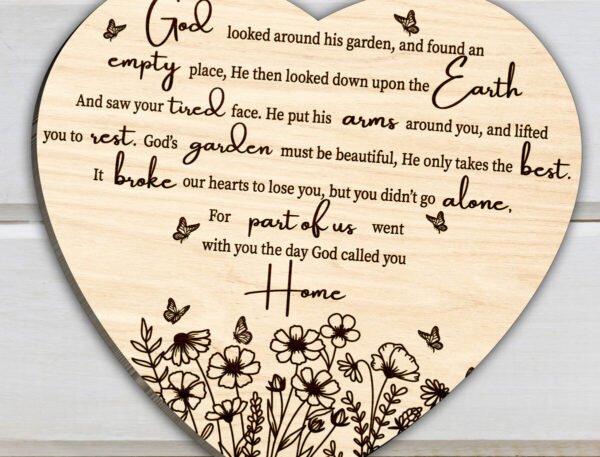 God looked around his garden, and found an
empty place, He then looked down upon the Earth
And saw your tired face. He put his arms around you, and lifted
you to rest. God's garden must be beautiful, He only takes the best.
It broke our hearts to lose you, but you didn't go alone,
For part of us went
with you the day God called you
Home